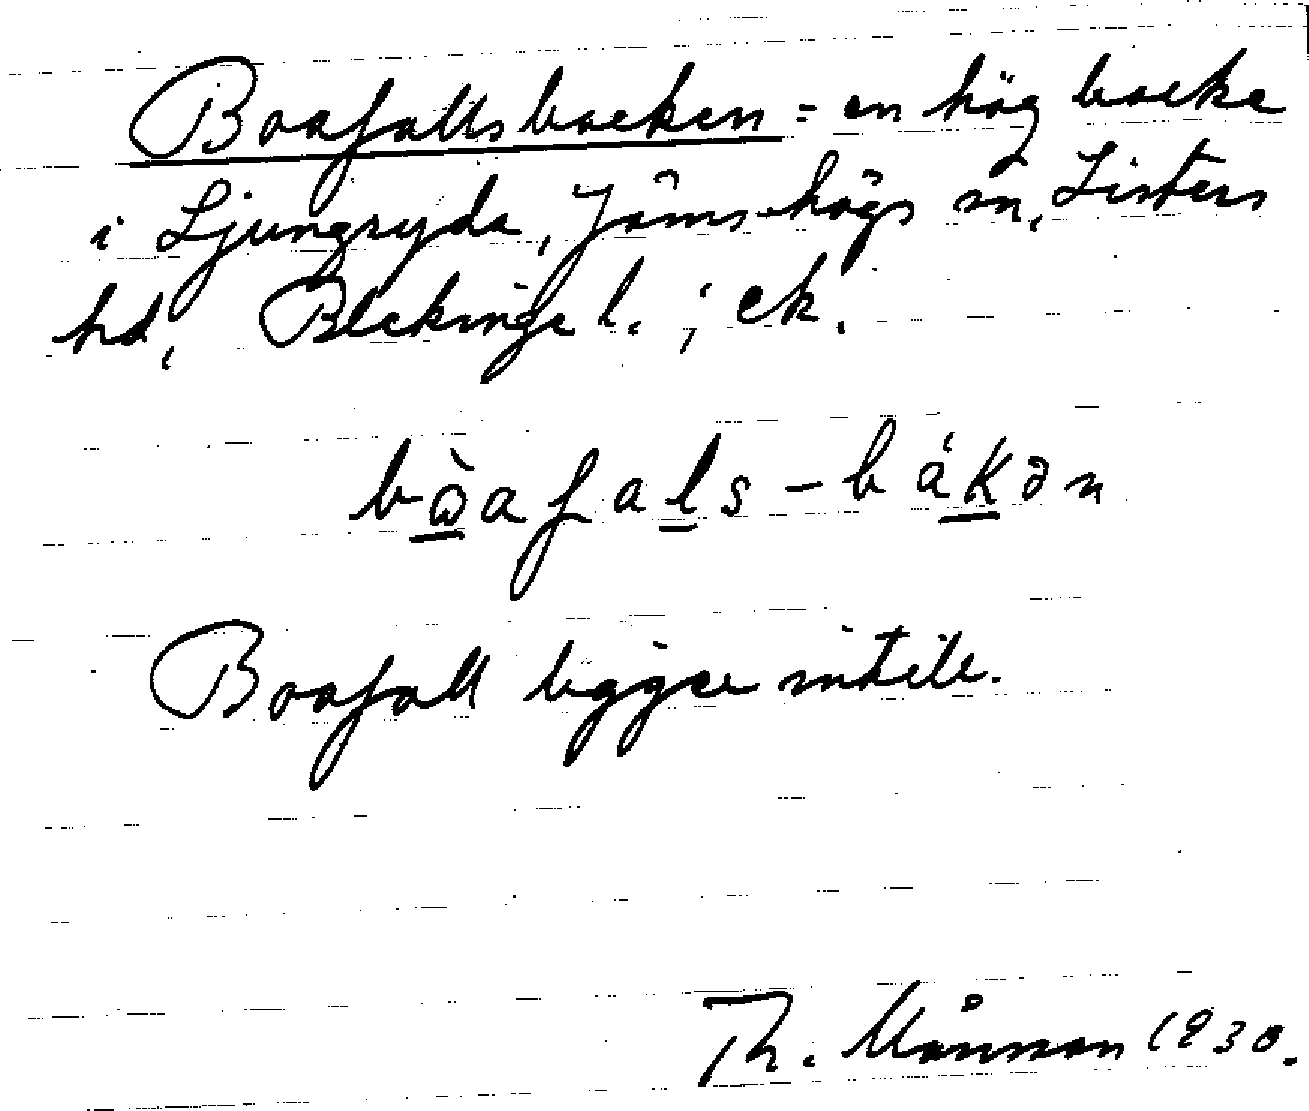 Boafallsbacken = en hög backe
i Ljungryda, Jämshögs sn, Listers
hd, Blekinge l. ; ek.
bòafals-bákən
Boafall ligger intill.
Th. Månsson 1930.